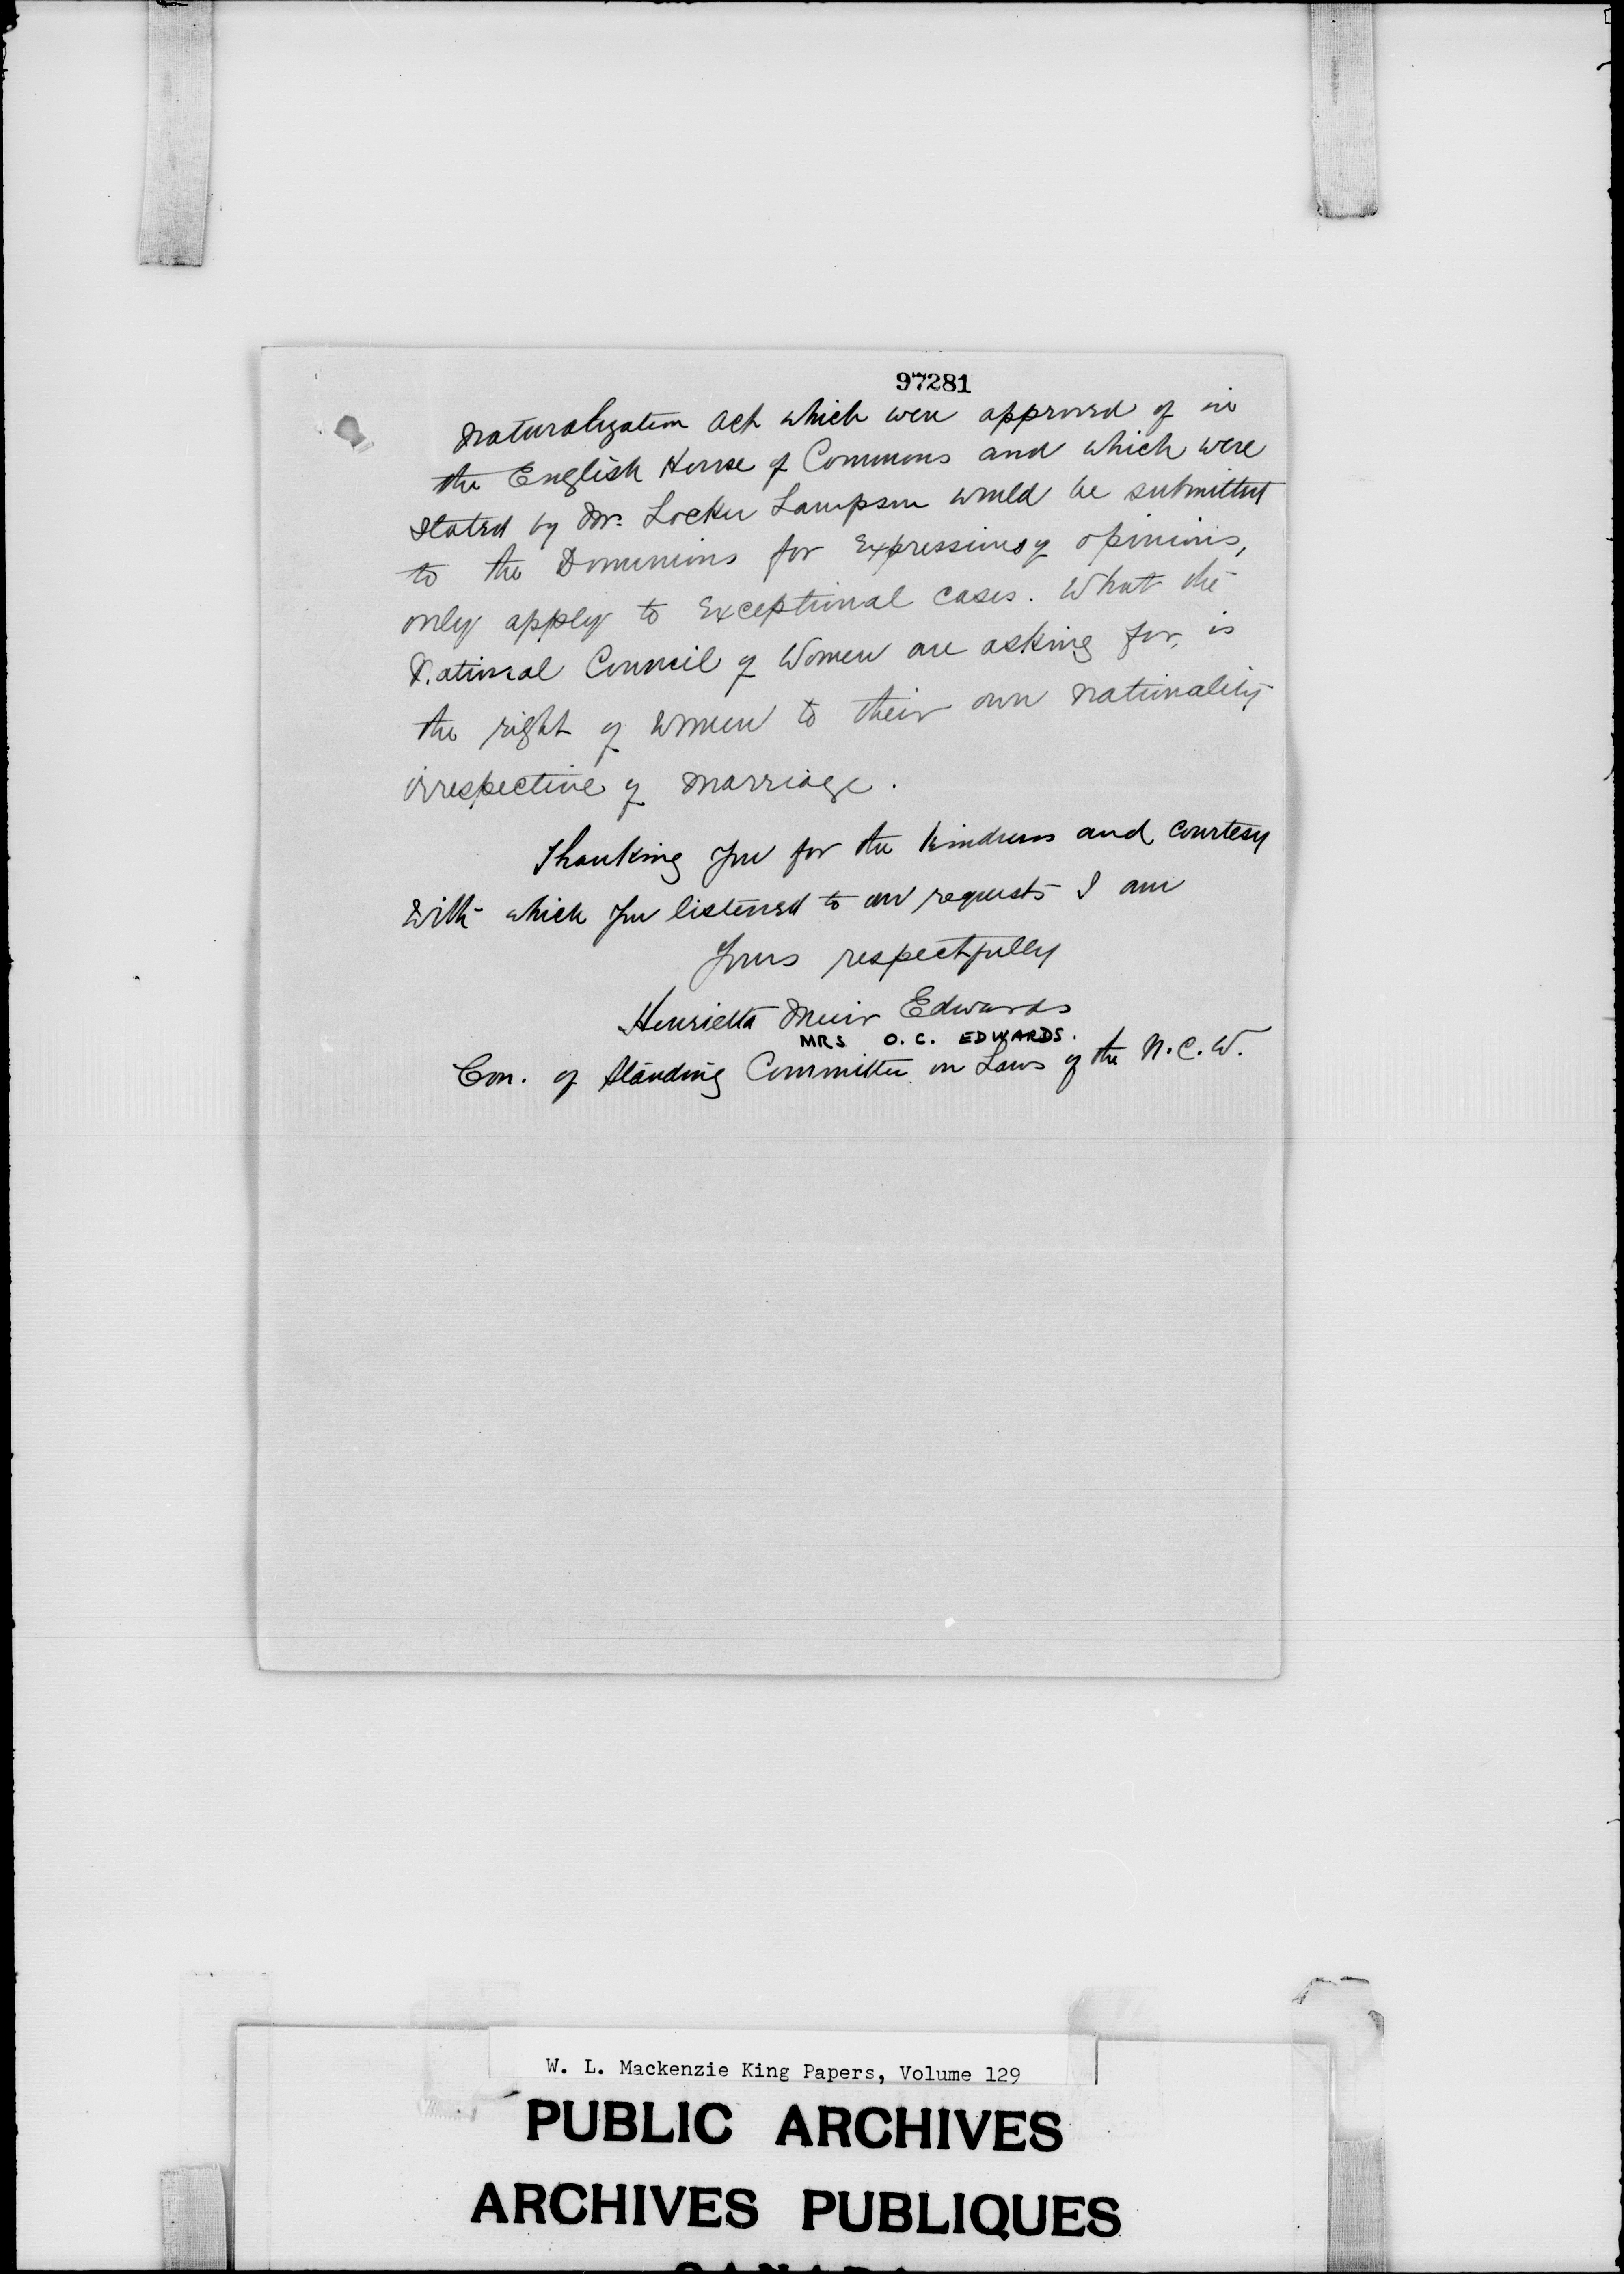 97281
Naturalization Act which were approved of in
the English House of Commons and which were
stated by Mr. Locker Lampson would be submitted
to the Dominions for expressions of opinions,
only apply to exceptional cases. What the
National Council of Women are asking for, is
the right of women to their own nationality
irrespective of marriage.
Thanking you for the kindness and courtesy
with which you listened to our requests I am
Yours respectfully
Henrietta Muir Edwards
MRS O. C. EDWARDS.
Con. of Standing Committee on Laws of the N.C.W.
W. L. Mackenzie King Papers, Volume 129
PUBLIC ARCHIVES
ARCHIVES PUBLIQUES